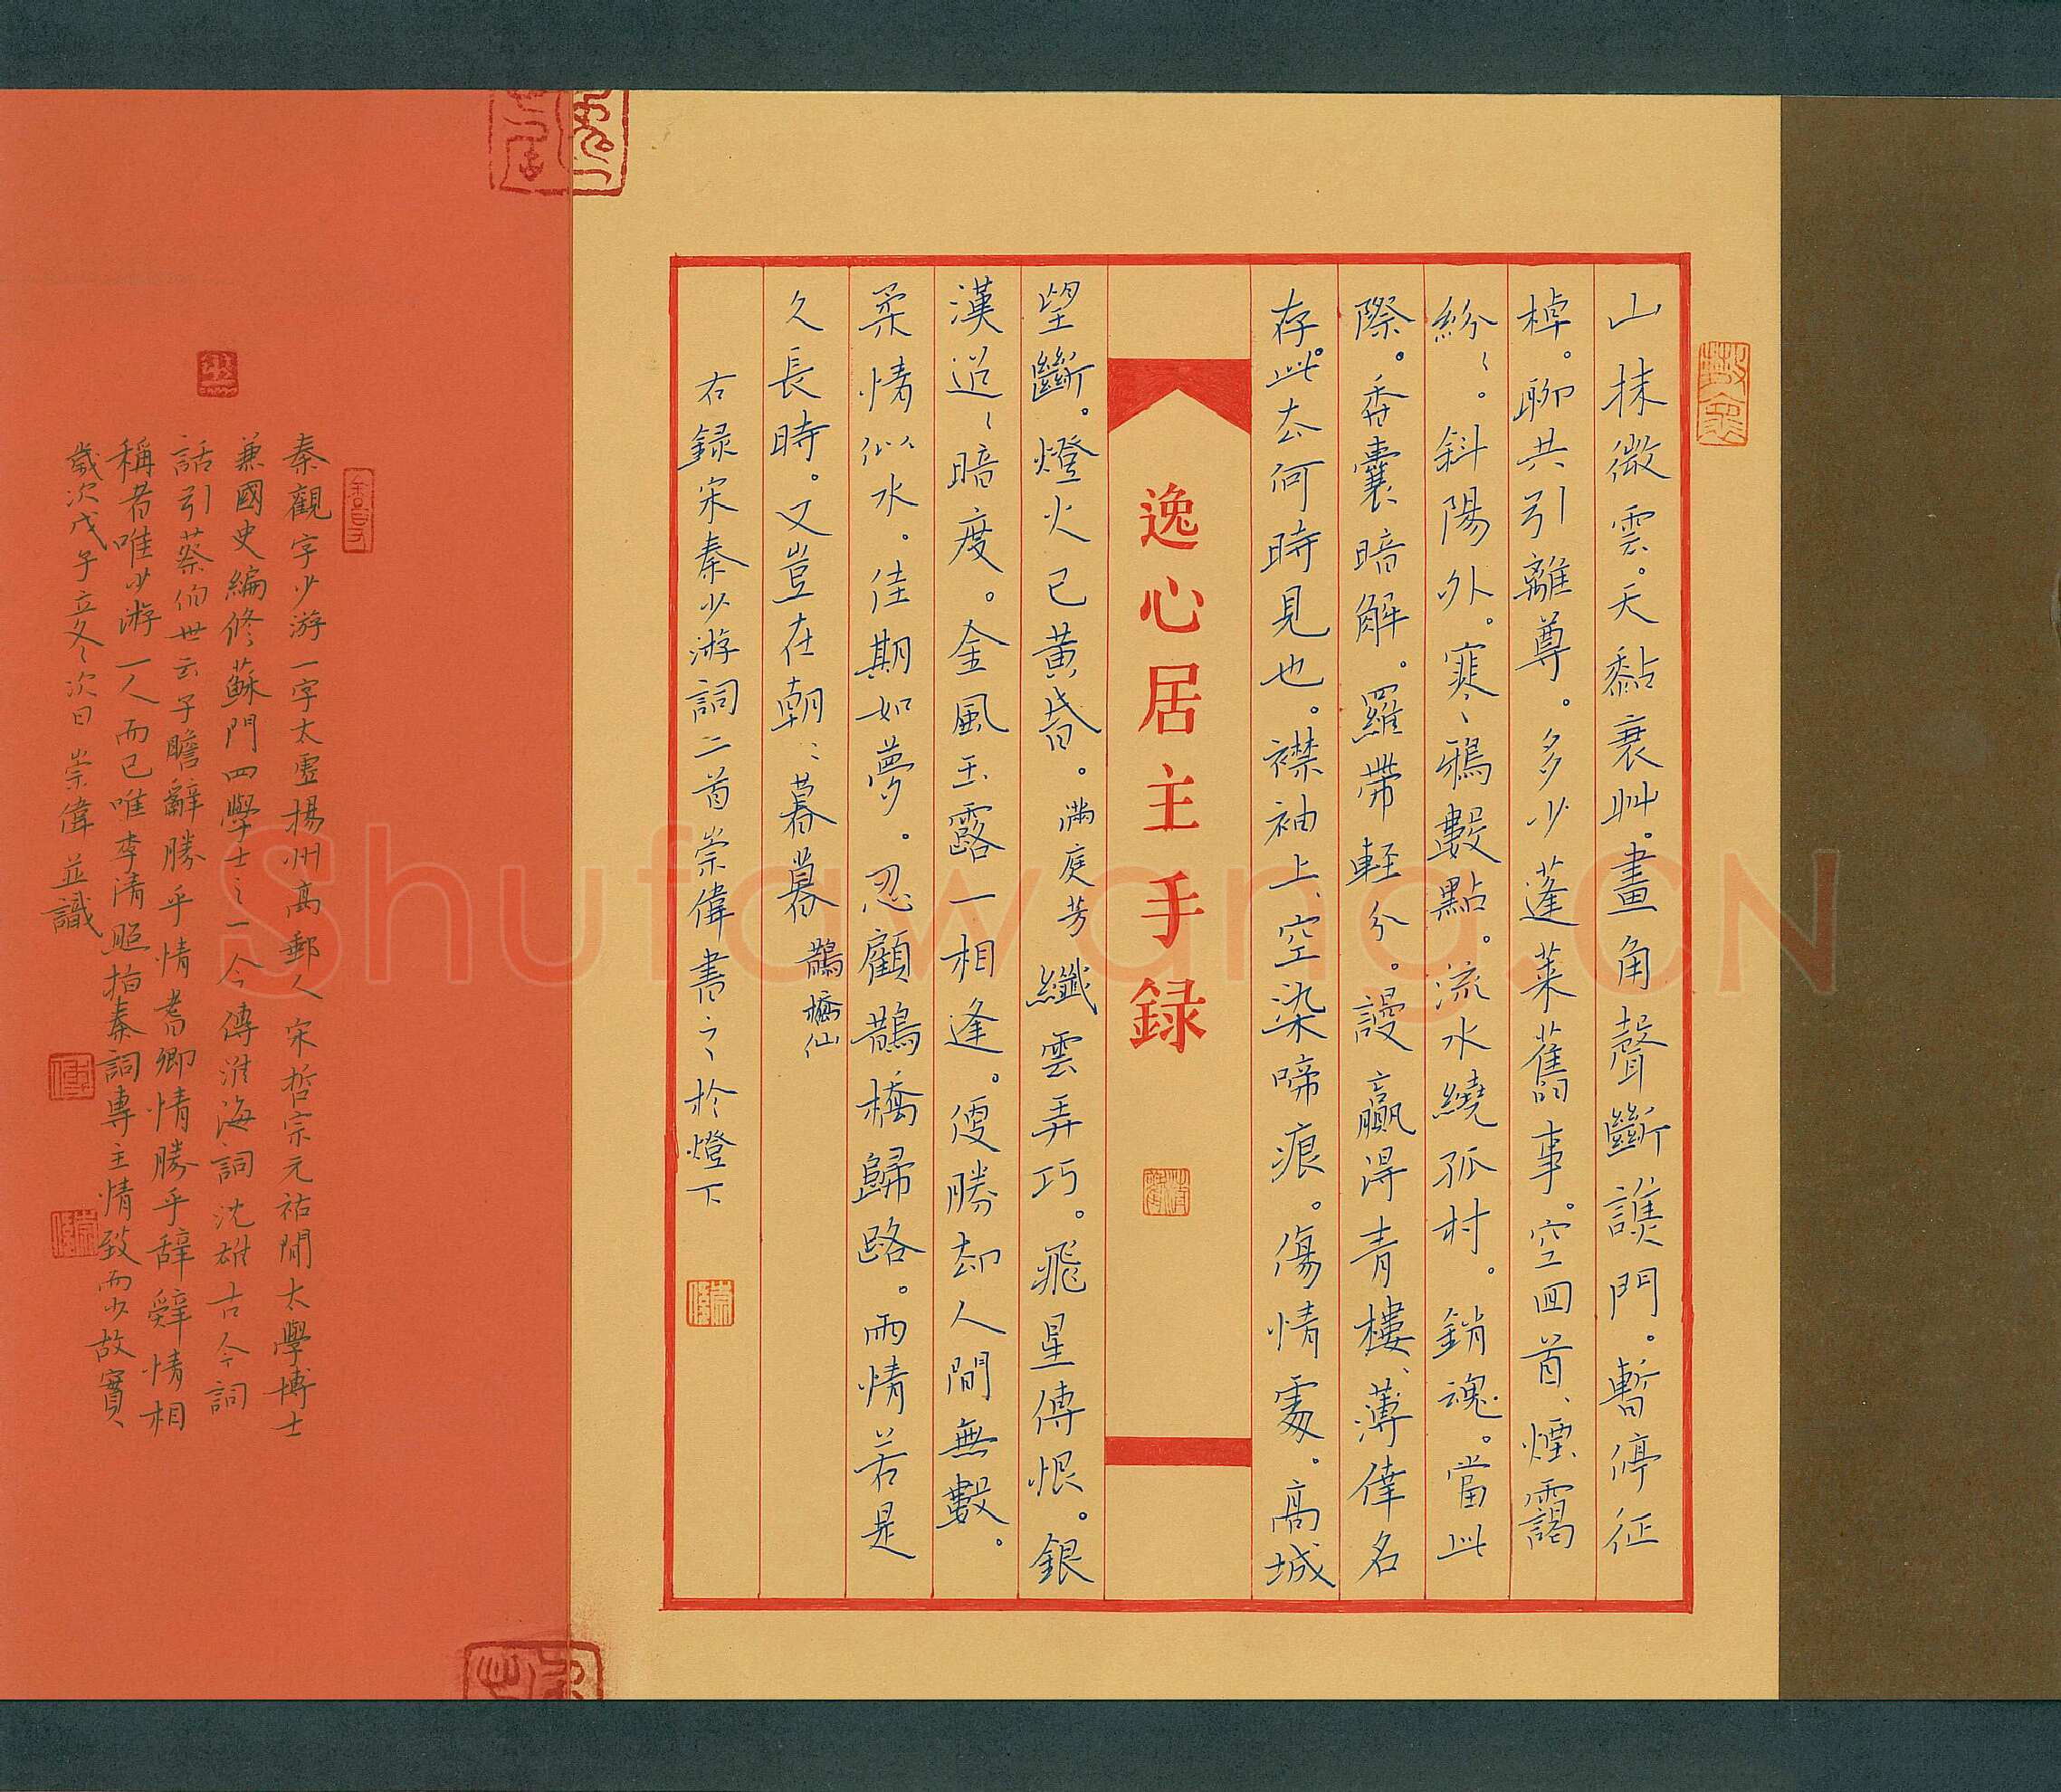 山抹微雲。天黏衰艸。畫角聲斷譙門。暫停征
棹。聊共引離尊。多少蓬萊舊事。空回首、煙靄
紛〻。斜陽外。寒鴉數點。流水繞孤村。銷魂。當此
際。香囊暗解。羅帶輕分。謾贏得青樓、薄倖名
存。此去何時見也。襟袖上、空染啼痕。傷情處。高城
逸心居主手録
望斷。燈火已黃昏。滿庭芳 纖雲弄巧。飛星傳恨。銀
漢迢〻暗度。金風玉露一相逢。便勝却人間無數。
柔情似水。佳期如夢。忍顧鵲橋歸路。兩情若是
久長時。又豈在朝〻暮暮 鵲橋仙
右録宋秦少游詞二首崇偉書之於燈下
秦觀字少游一字太虛揚州高郵人宋哲宗元祐間太學博士
兼國史編修蘇門四學士之一今傳淮海詞沈雄古今詞
話引蔡伯世云子瞻辭勝乎情耆卿情勝乎辭辭情相
稱者唯少游一人而已唯李清照指秦詞專主情致而少故實
歲次戊子立冬次日崇偉並識
Shufawang.CN